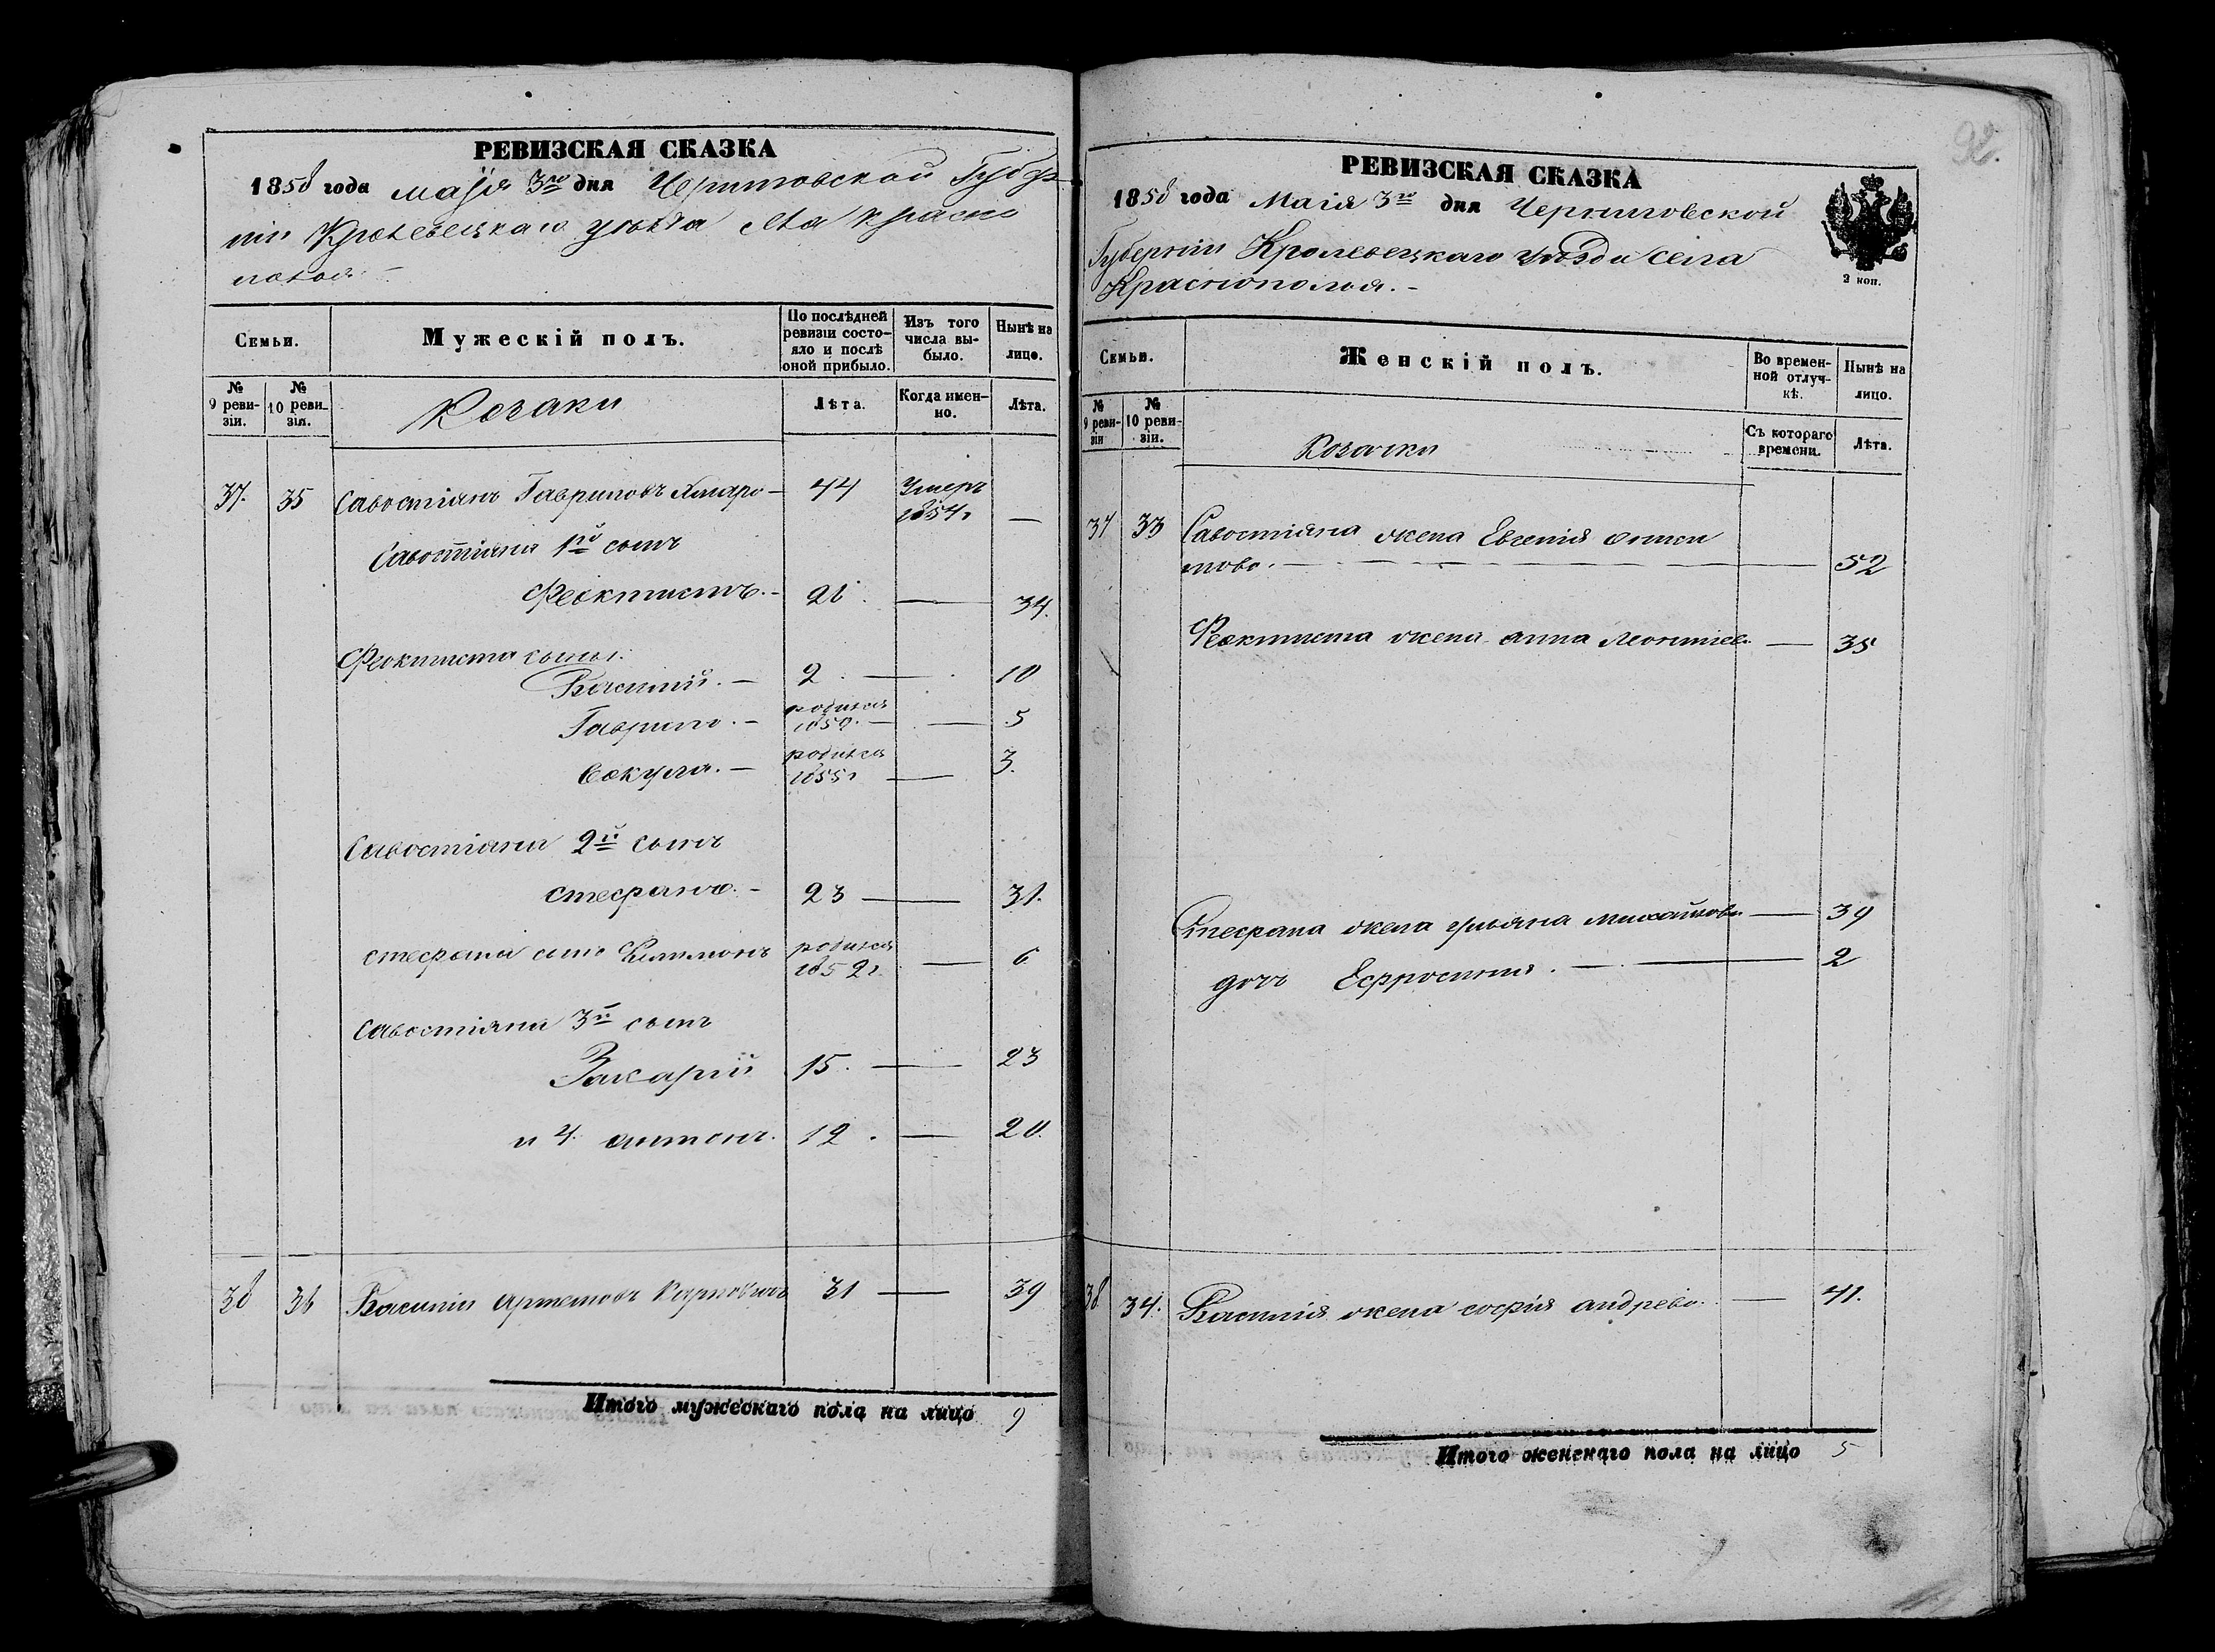 РЕВИЗСКАЯ СКАЗКА
1858 года маія 3го дня Черниговской Губер
ніи Кролевецкаго уѣзда села Красно
полья. –
Семьи.
Мужескій полъ.
По послѣдней ревизіи состо-
яло и послѣ оной прибыло.
Изъ того числа вы-
было.
Нынѣ на лицо.
№ 9 реви-
зіи.
№ 10 реви-
зіи.
Козаки
Лѣта.
Когда имен-
но.
Лѣта.
37. 35 Савостіянъ Гавриловъ Хмаро – 44 Умеръ
1854г —
Савостіяна 1й сынъ
Феоктистъ. – 26 — 34.
Феоктиста сыны:
Василій. – 2 — 10
Гаврило. – родился
185 — 5
Вакула. – родился
1855г — 3.
Савостіяна 2й сынъ
Стефанъ. – 23 — 31.
Стефана сынъ Филимонъ родился
1852г. — 6
Савостіяна 3й сынъ
Захарій 15. — 23
и 4. Антонъ. 12. — 20.
38 36 Василій Артемовъ 31 — 39
Итого мужескаго пола на лицо 9
92.
РЕВИЗСКАЯ СКАЗКА
1858 года Маія 3го дня Черниговской
Губерніи Кролевецкаго уѣзда села
Краснополья. –
2 коп.
Семьи.
Женскій полъ.
Во времен-
ной отлуч-
кѣ.
Нынѣ на лицо.
№ 9 реви-
зіи
№ 10 реви-
зіи.
Козачки
Съ котораго времени.
Лѣта.
37 33 Савостіяна жена Евгенія Аниси
мова. — 52
Феоктиста жена Анна Леонтіев. — 35
Стефана жена Ульяна Михайлова — 39
дочь Ефросинія. — 2
38. 34. Василія жена Софія Андрева. — 41.
Итого женскаго пола на лицо 5